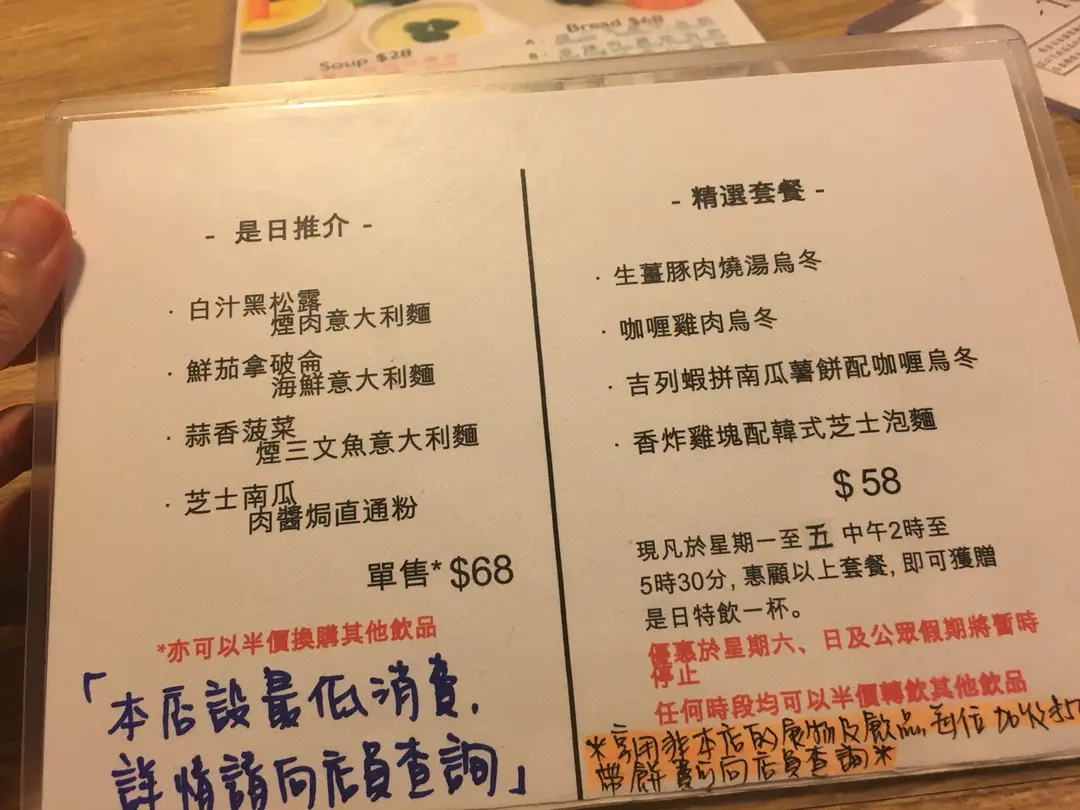 Soup $28
Bread $68
- 是日推介 -
· 白汁黑松露
煙肉意大利麵
· 鮮茄拿破侖
海鮮意大利麵
· 蒜香菠菜
煙三文魚意大利麵
· 芝士南瓜
肉醬焗直通粉
單售* $68
*亦可以半價換購其他飲品
「本店設最低消費,
詳情請向店員查詢」
- 精選套餐 -
· 生薑豚肉燒湯烏冬
· 咖喱雞肉烏冬
· 吉列蝦拼南瓜薯餅配咖喱烏冬
· 香炸雞塊配韓式芝士泡麵
$ 58
現凡於星期一至五 中午2時至
5時30分, 惠顧以上套餐, 即可獲贈
是日特飲一杯。
優惠於星期六、日及公眾假期將暫時
停止
任何時段均可以半價轉飲其他飲品
*享用非本店的食物及飲品, 每位加收
餅費可向店員查詢*